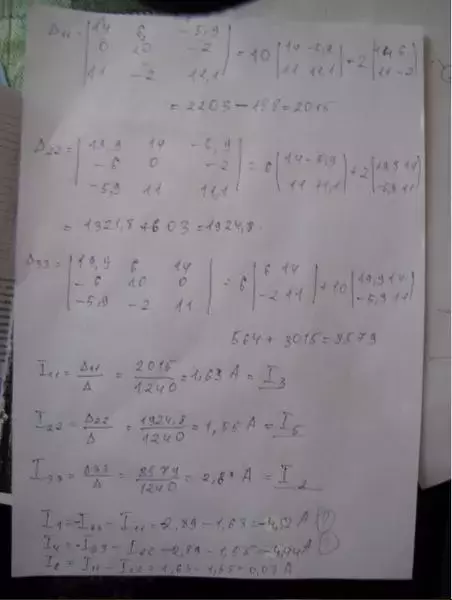 Δ₁₁ = | 14 6 -5,9 | = 10 | 14 -5,9 | + 2 | 14 6 |
| 0 10 -2 |
| 11 -2 11,1 | | 11 11,1 | | 11 -2 |
= 2203 - 188 = 2015
Δ₂₂ = | 19,9 14 -5,9 | = 6 | 14 -5,9 | + 2 | 19,9 14 |
| -6 0 -2 |
| -5,9 11 11,1 | | 11 11,1 | | -5,9 11 |
= 1321,8 + 603 = 1924,8
Δ₃₃ = | 19,9 6 14 | = 6 | 6 14 | + 10 | 19,9 14 |
| -6 10 0 |
| -5,9 -2 11 | | -2 11 | | -5,9 11 |
564 + 3015 = 3579
I₁₁ = Δ₁₁/Δ = 2015/1240 = 1,63 A = I₃
I₂₂ = Δ₂₂/Δ = 1924,8/1240 = 1,55 A = I₅
I₃₃ = Δ₃₃/Δ = 3579/1240 = 2,89 A = I₂
I₁ = -I₃₃ - I₁₁ = -2,89 - 1,63 = -4,52 A
I₄ = -I₃₃ - I₂₂ -2,89 - 1,55 -4,44 A
I₆ = I₁₁ - I₂₂ = 1,63 - 1,55 = 0,07 A